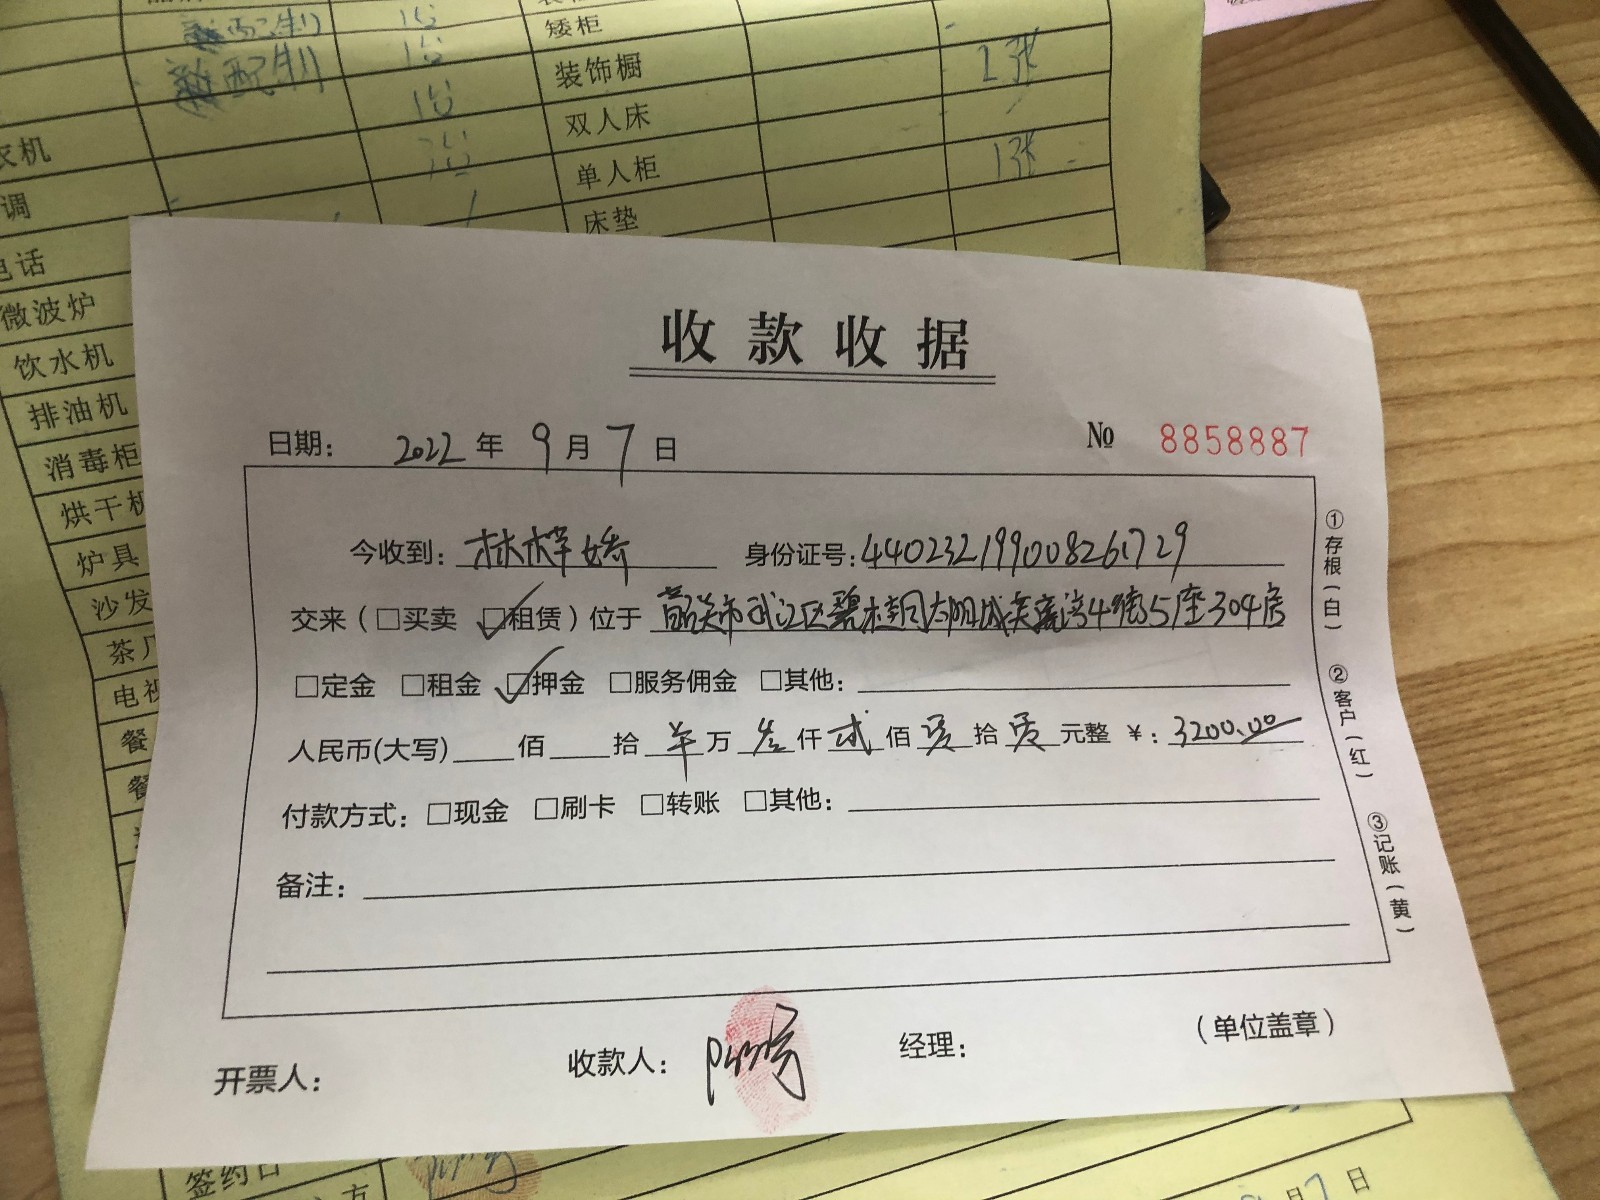 配制 1台
矮柜
配制 1台 装饰橱 1张
1台 双人床
衣机 单人柜 1张
调 床垫
电话
微波炉
饮水机
排油机
消毒柜
烘干机
炉具
沙发
茶几
电视
餐
餐
收款收据
日期: 2022 年 9 月 7 日 № 8858887
今收到: 林梓娇 身份证号: 440232199008261729
交来(□买卖 ☑租赁)位于 韶关市武江区碧桂园太阳城天鹅湾4街5座304房
□定金 □租金 ☑押金 □服务佣金 □其他:
人民币(大写) 佰 拾 羊万 叁仟 贰佰 零拾 零元整 ¥: 3200.00
付款方式: □现金 □刷卡 □转账 □其他:
备注:
①存根(白)
②客户(红)
③记账(黄)
开票人: 收款人: 经理: (单位盖章)
签约日
方 月 7 日